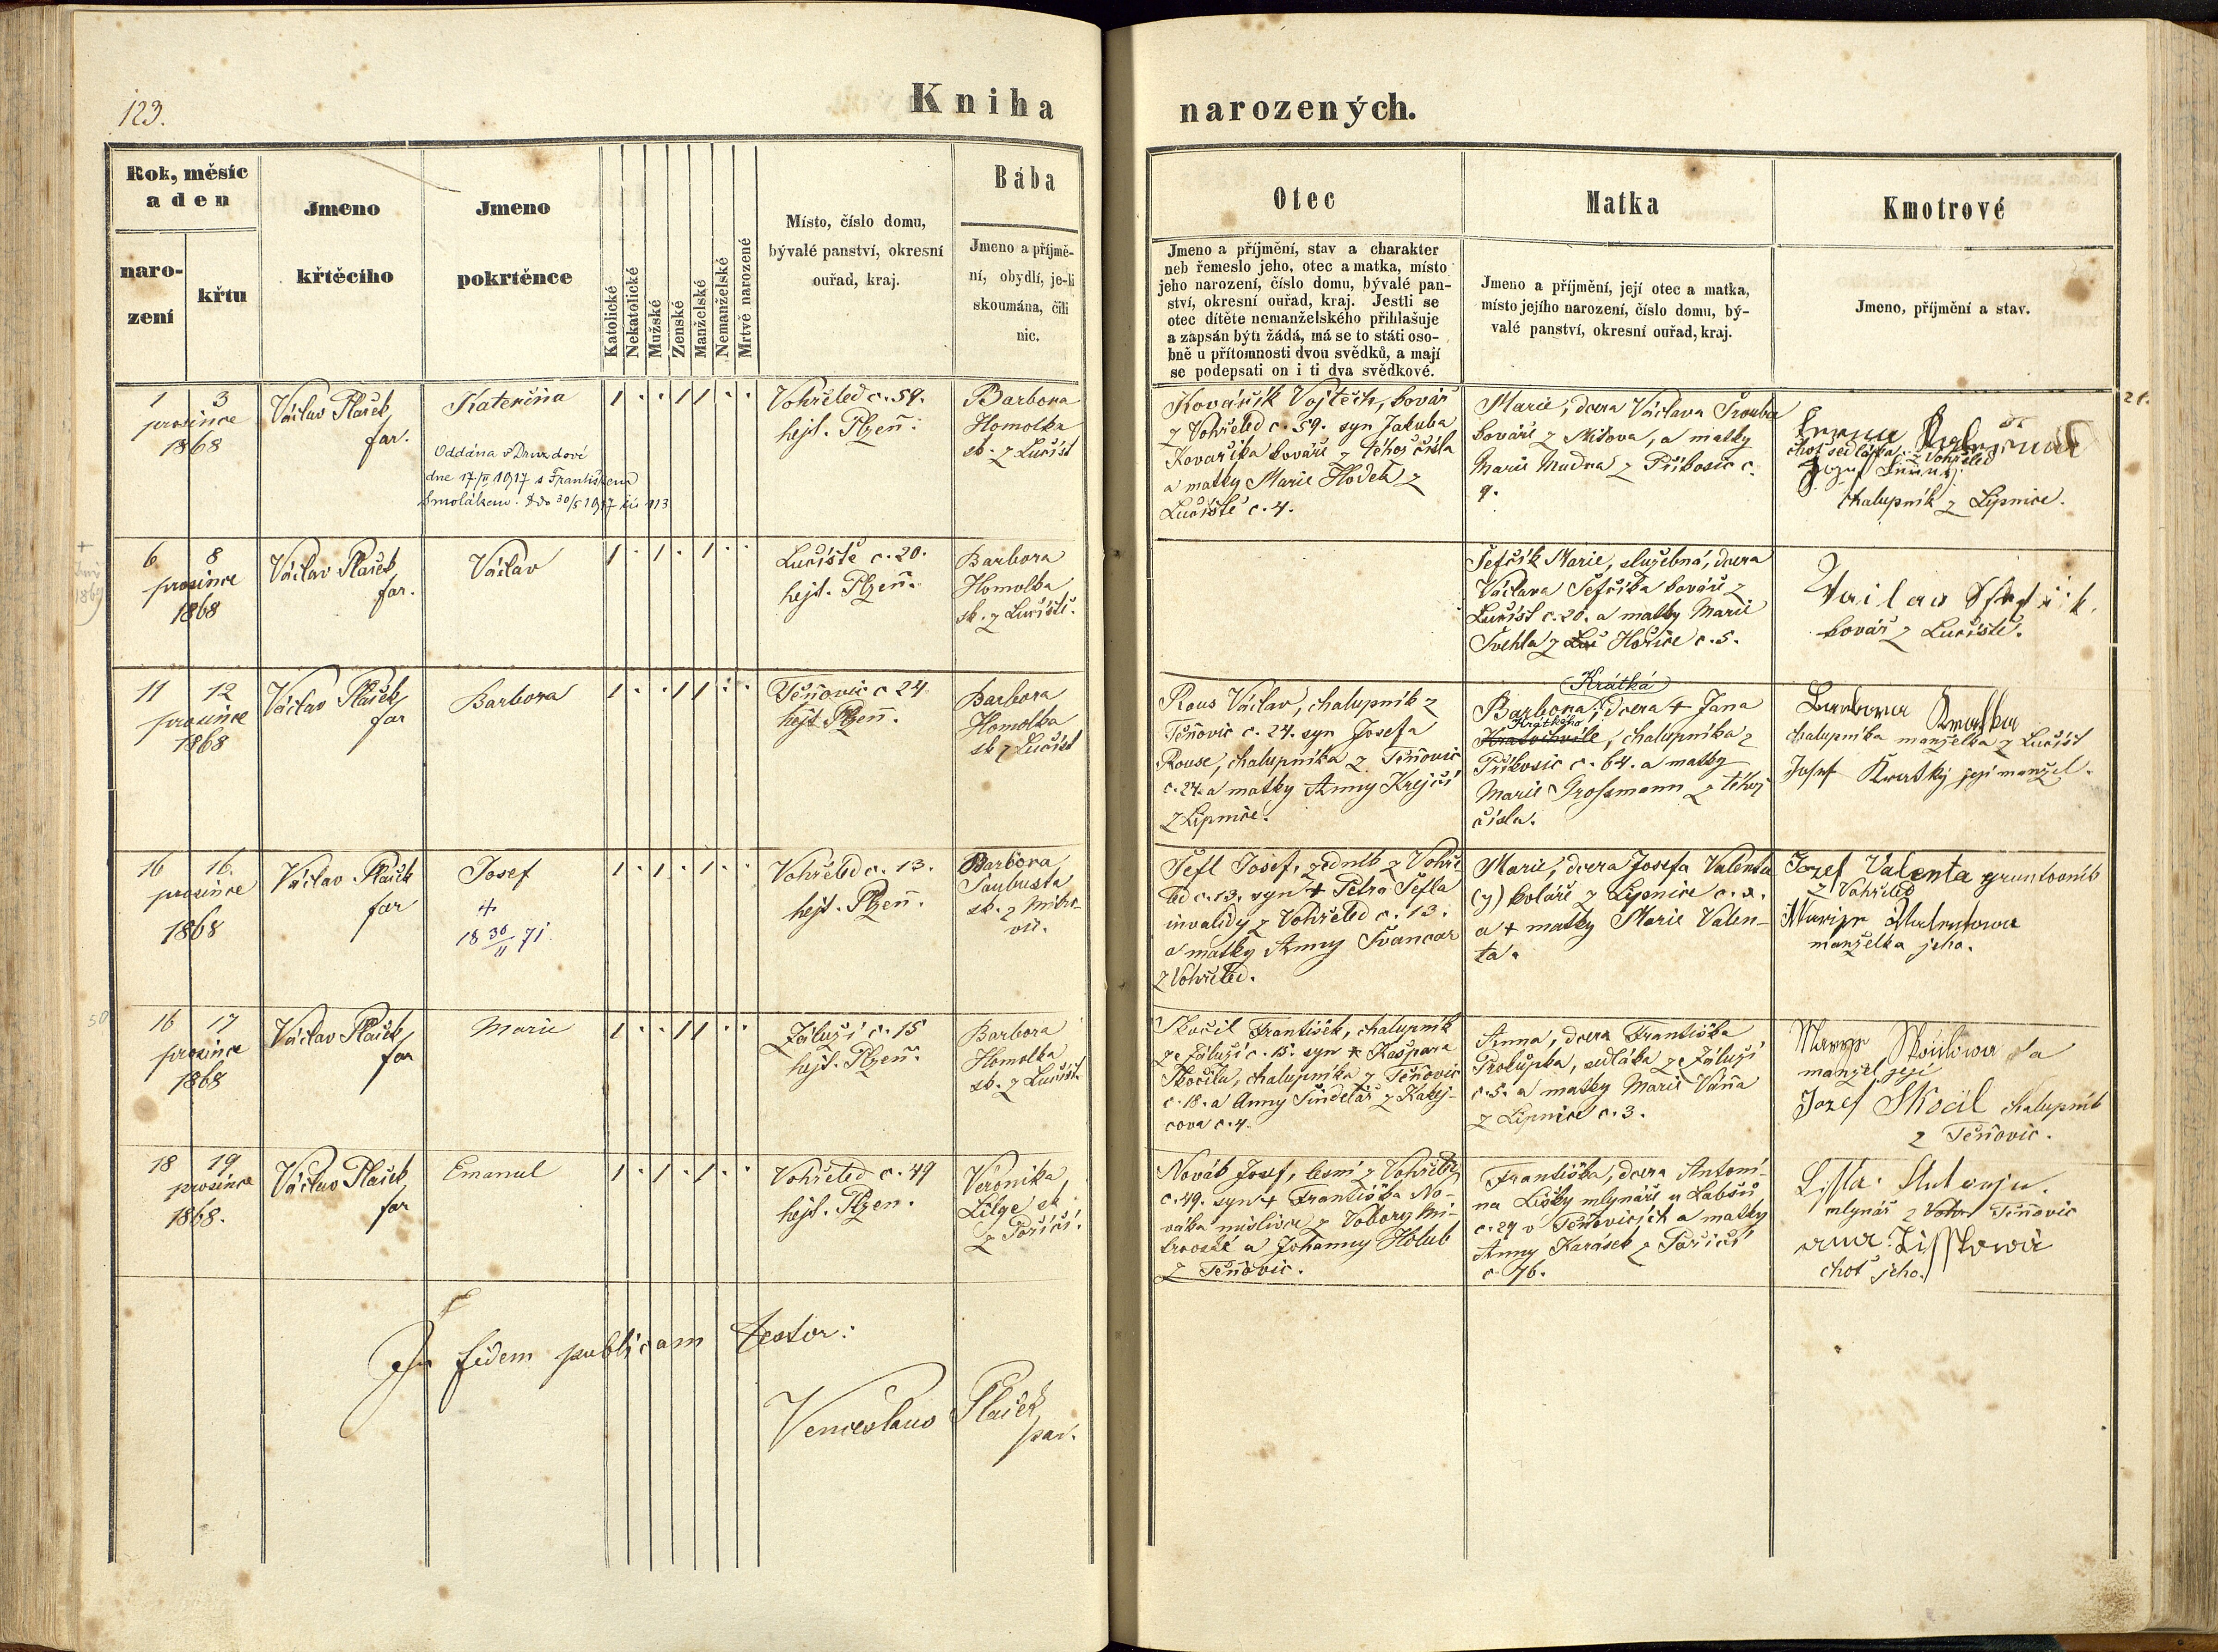 123.
Kniha narozených.
Rok, měsíc
a den
naro-
zení
křtu
Jmeno
křtěcího
Jmeno
pokrtěnce
Katolické
Nekatolické
Mužské
Zenské
Manželské
Nemanželské
Mrtvě narozené
Místo, číslo domu,
bývalé panství, okresní
ouřad, kraj.
Bába
Jmeno a příjmě-
ní, obydlí, je-li
skoumána, čili
nic.
Otec
Jmeno a příjmění, stav a charakter
neb řemeslo jeho, otec a matka, místo
jeho narození, číslo domu, bývalé pan-
ství, okresní ouřad, kraj. Jestli se
otec dítěte nemanželského přihlašuje
a zapsán býti žádá, má se to státi oso-
bně u přítomnosti dvou svědků, a mají
se podepsati on i ti dva svědkové.
Matka
Jmeno a příjmění, její otec a matka,
místo jejího narození, číslo domu, bý-
valé panství, okresní ouřad, kraj.
Kmotrové
Jmeno, příjmění a stav.
1 3
prosince
1868
Václav Plašek
far.
Kateřina
Oddána v Druzdové
dne 17/II 1917 s Františkem
Smolákem
1 · · 1 1 · ·
Vohřeled c. 59.
hejt. Plzeň.
Barbora
Homolka
sk. z Lučišť
Kovářík Vojtěch, kovář
z Vohřeled c. 59. syn Jakuba
Kovaříka kováře z téhož čísla
a matky Marie Hodek z
Lučiště c. 4.
Marie, dcera Václava Trouba
kováře z Mítova, a matky
Marie Mudra z Příkosic c.
9.
choť sedláka z Vohřeled
chalupník z Lipnice.
21.
6 8
prosince
1868
Václav Plašek
far.
Václav
1 · 1 · 1 · ·
Lučiště c. 20.
hejt. Plzeň.
Barbora
Homolka
sk. z Lučiště.
Šefčík Marie, služebná, dcera
Václava Šefčíka kováře z
Lučišť c. 20. a matky Marie
Švehla z Hořice c. 5.
kovář z Lučiště.
11 12
prosince
1868
Václav Plašek
far
Barbora
1 · · 1 1 · ·
Těňovic c 24
hejt. Plzeň.
Barbora
Homolka
sk z Lučišť
Rous Václav, chalupník z
Těňovic c. 24. syn Josefa
Rouse, chalupníka z Těňovic
c. 24. a matky Anny Krejčí
z Lipnice.
Krátká
Barbora, dcera + Jana
Krátkého
Kratochvíle, chalupníka z
Příkosic c. 64. a matky
Marie Grossmann z téhož
čísla.
Barbora Kratka
chalupníka manželka z Lučišť
Josef Kratký její manžel.
16 16.
prosince
1868
Václav Plašek
far
Josef
+
18 30/11 71.
1 · 1 · 1 · ·
Vohřeled c. 13.
hejt. Plzeň.
Barbora
Taubusta
sk. z Mitro-
vic.
Šefl Josef, zedník z Vohře-
led c. 13. syn + Petra Šefla
invalidy z Vohřeled c. 13.
a matky Anny Švancar
z Vohřeled.
Marie, dcera Josefa Valenta
(y) koláře z Lipnice c. 2.
a + matky Marie Valen-
ta.
Jozef Valenta gruntovník
z Vohřeled
Marije Walentowa
manželka jeho.
16 17
prosince
1868
Václav Plašek
far
Marie
1 · · 1 1 · ·
Záluží c. 15
hejt. Plzeň.
Barbora
Homolka
sk. z Lučišť.
Skočil František, chalupník
ze Záluží c. 15. syn + Kašpara
Skočila, chalupníka z Těňovic
c. 18. a Anny Šindelář z Kakej-
cova c. 4.
Anna, dcera Františka
Prokůpka, sedláka ze Záluží
c. 5. a matky Marie Váňa
z Lipnice c. 3.
manžel její
Jozef Skočil chalupník
z Těňovic.
18 19
prosince
1868.
Václav Plašek
far
Emanuel
1 · 1 · 1 · ·
Vohřeled c. 49
hejt. Plzen.
Veronika
Lilge sk
z Poříčí.
Novák Josef, lesní z Vohřeled
c. 49. syn + Františka No-
váka myslivce z Vobory Mi-
trovské a Johanny Holub
z Těňovic.
Františka, dcera Antoní-
na Lišky mlynáře u Labšů
c. 29 v Těňovicích a matky
Anny Karásek z Poříčí
c. 76.
Lisska Antonjn.
mlynář z Těňovic
ana Lisskowa
choť jeho.
In fidem publicam testor:
Venceslaus Plašek
par.